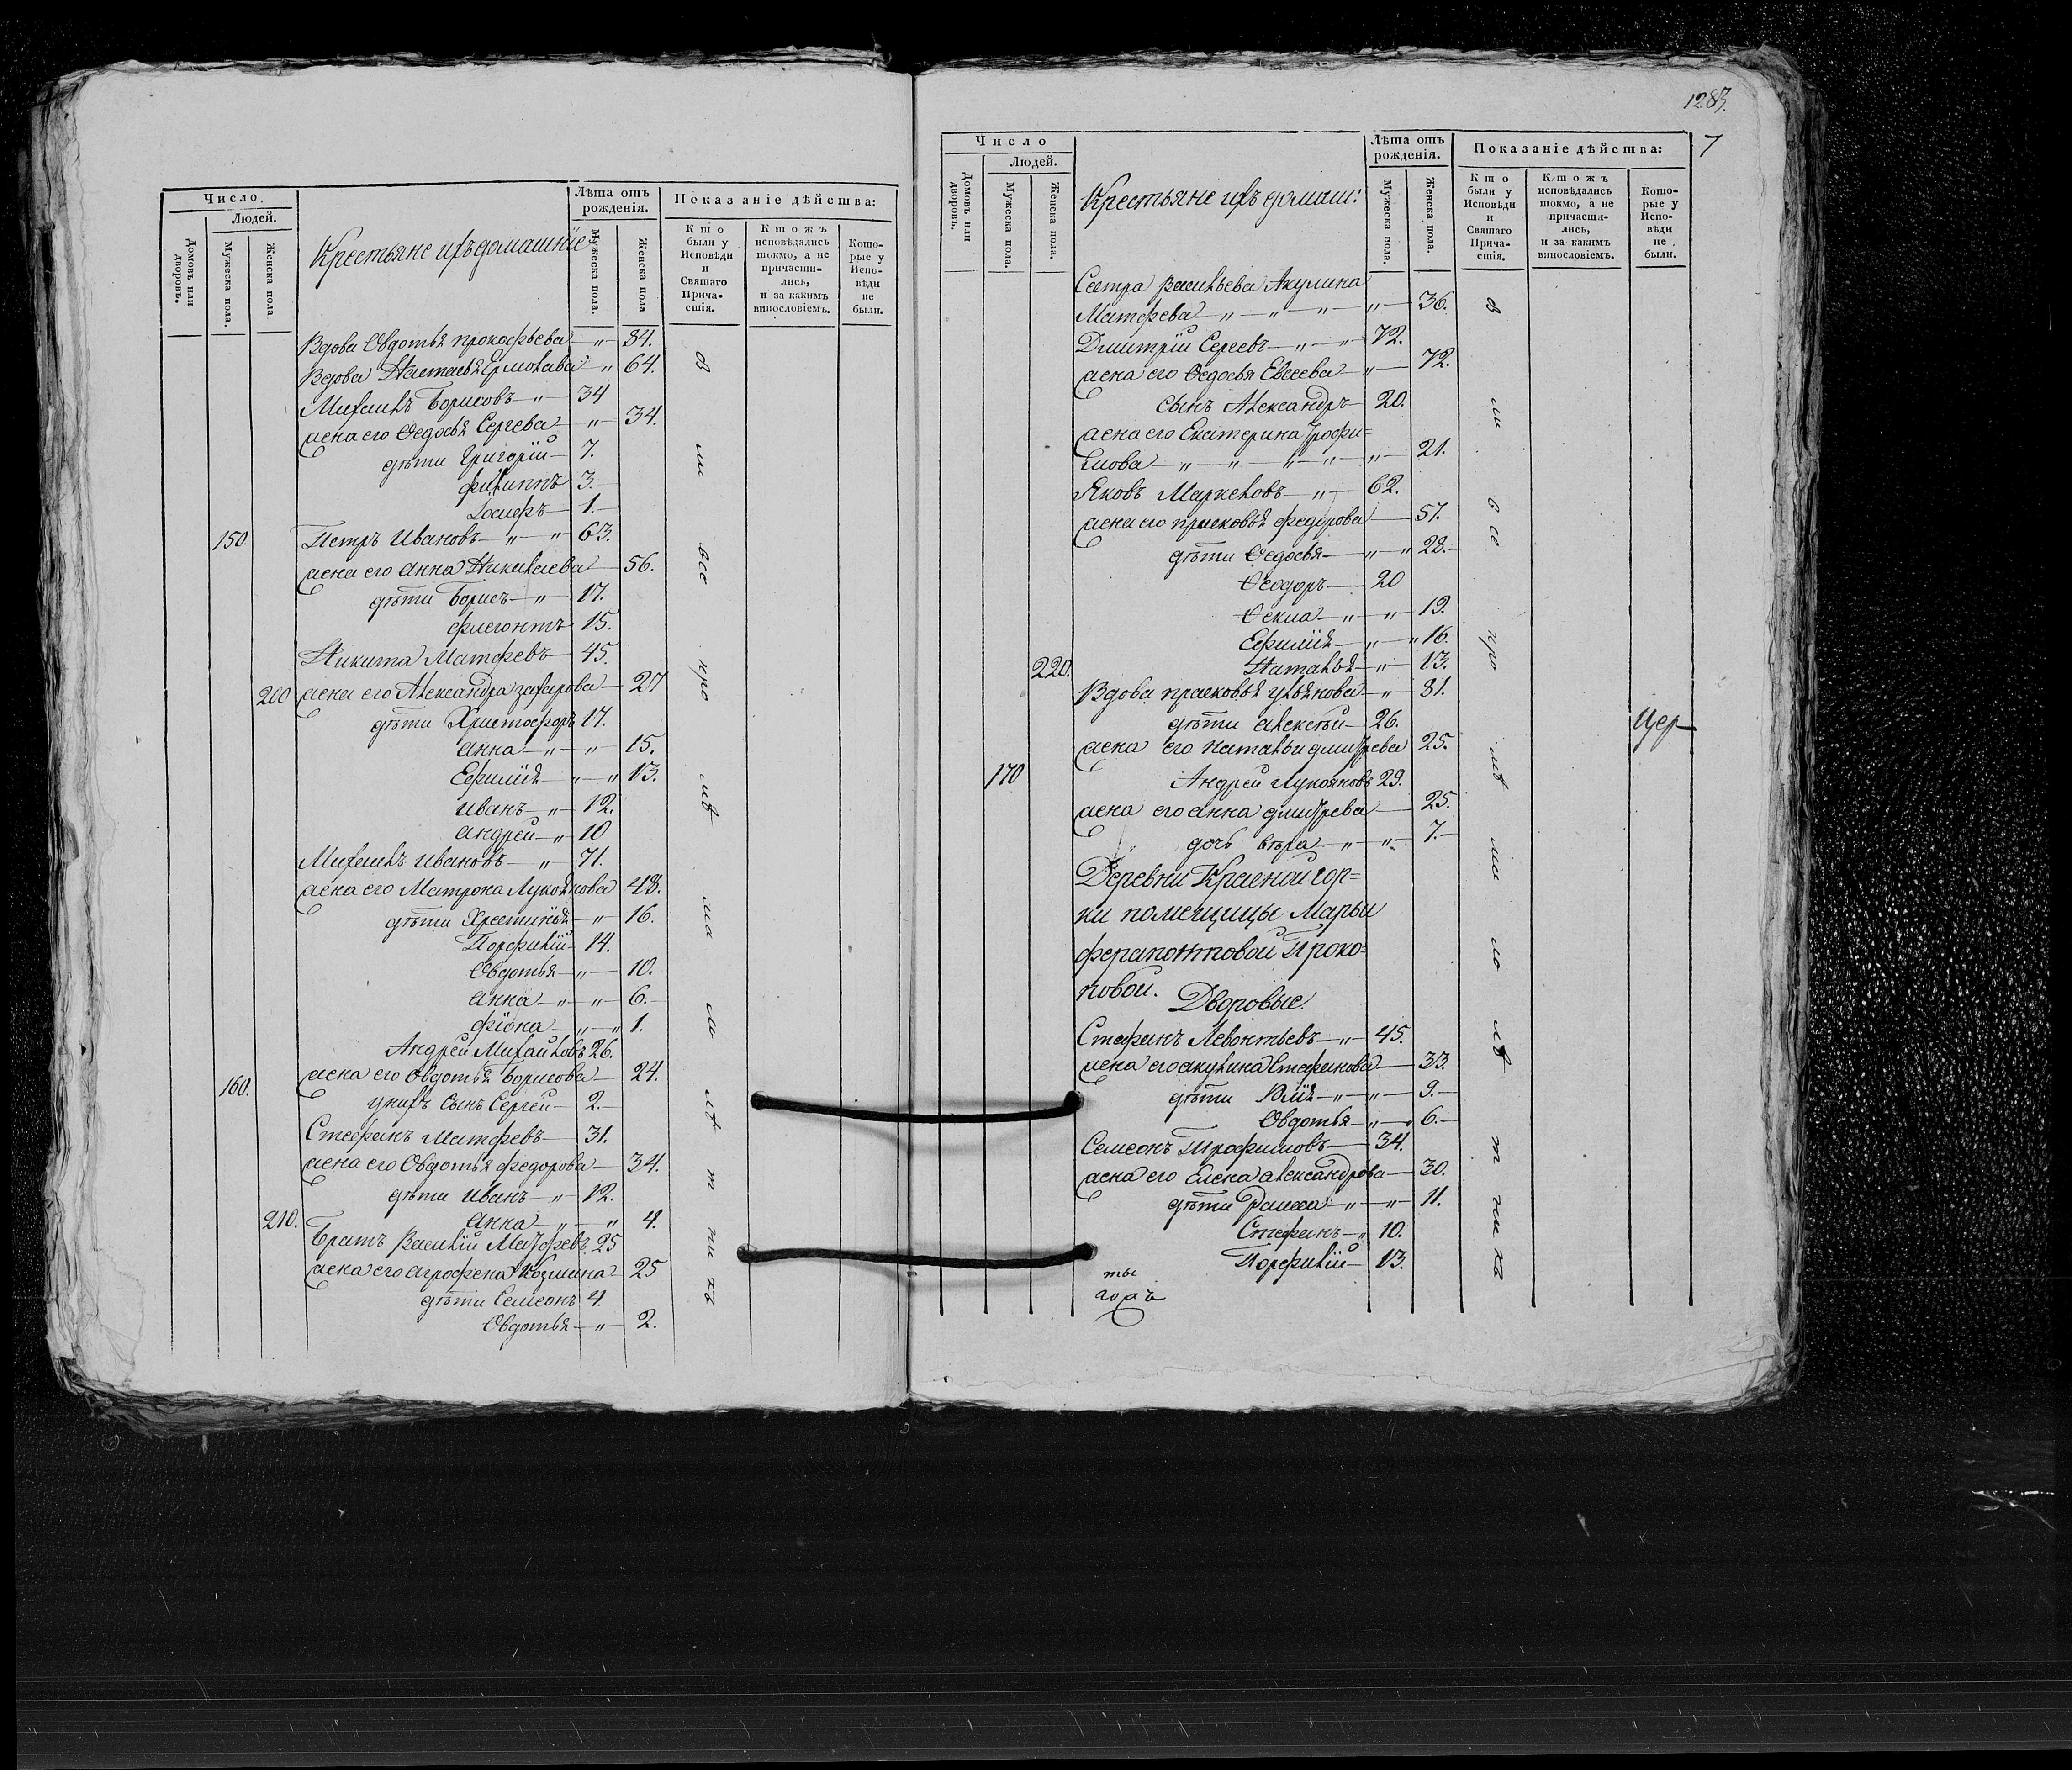 Число.
Людей.
Домовъ или дворовъ.
Мужеска пола.
Женска пола
Крестьяне ихъ домашніе
Лѣта отъ рожденія.
Мужеска пола.
Женска пола
Показаніе дѣйства:
Кто были у Исповѣди и Святаго Причастія.
Ктожъ исповѣдались токмо, а не причастились, и за какимъ винословіемъ.
Которые у Исповѣди не были.
Вдова Овдотья прокофьева — „ — 84.
Вдова Настасья Ермолаева „ 64.
Михаилъ Борисовъ — „ — 34
жена его Ѳедосья Сергева — „ — 34.
дѣти Григорій — 7.
филиппъ 3.
Іосифъ — 1.
150. Петръ Ивановъ — „ — „ 63.
жена его анна Николаева — 56.
дѣти Борисъ — „ — 17.
флегонтъ 15.
Никита Матфевъ — 45.
200 жена его Александра захарова — 27
дѣти Христофоръ 17.
анна — „ — „ — 15.
Ефимія — „ — „ 13.
иванъ — „ — 12.
андрей — „ 10
Михаилъ ивановъ — „ 71.
жена его Матрона Лукоянова 48.
дѣти Хрестинья — „ — 16.
Порфилій — 14.
Овдотья — „ — 10.
анна — „ — „ — 6.
фіона — „ — „ 1.
Андрей Михайловъ 26.
жена его Овдотья Борисова — 24.
160. унихъ сынъ Сергей — 2.
Стефанъ Матфевъ — 31.
жена его Овдотья федорова — 34.
дѣти иванъ — „ — 12.
210. анна — „ — „ 4.
Братъ Василій Матфевъ 25
жена его агрофена Козмина 25
дѣти Семеонъ 4.
Овдотья — „ — 2.
1283.
7
Число
Людей.
Домовъ или дворовъ.
Мужеска пола.
Женска пола.
Крестьяне ихъ домаш:
Лѣта отъ рожденія.
Мужеска пола.
Женска пола.
Показаніе дѣйства:
Кто были у Исповѣди и Святаго Причастія.
Ктожъ исповѣдались токмо, а не причастились, и за какимъ винословіемъ.
Которые у Исповѣди не были.
Сестра васильева Акулина
Матфева — „ — „ — „ — „ — 36.
Дмитрій Сергевъ — „ — „ 72.
жена его Ѳедосья Евсеева — „ — 72.
сынъ Александръ 20.
жена его Екатерина Трофи=
мова — „ — „ — „ — „ — „ — 21.
Яковъ Маркеловъ — „ — 62.
жена его прасковья федорова — 57.
дѣти Ѳедосья — „ „ 28.
Ѳеодоръ — 20
Ѳекла — „ — „ — 19.
Ефимія — „ — „ 16.
220. Наталья — „ — 13.
Вдова прасковья ульянова — „ 81.
дѣти алексѣй — 26.
Цер
жена его наталья дмитрева 25.
170 Андрей Лукояновъ 29.
жена его анна дмитрева — 25.
дочь вѣра — „ — „ — 7.
Деревни Красной гор=
ки помещицы Марьи
ферапонтовой Проко=
повой. Дворовые.
Стефанъ Левонтьевъ — „ — 45.
жена его акулина Стефанова — 33.
дѣти — „ — „ — 9.
Овдотья — „ — 6.
Семеонъ Трофимовъ — 34.
жена его Елена александрова — 30.
дѣти — „ — „ — 11.
Стефанъ — „ 10.
Порфилій — 13.